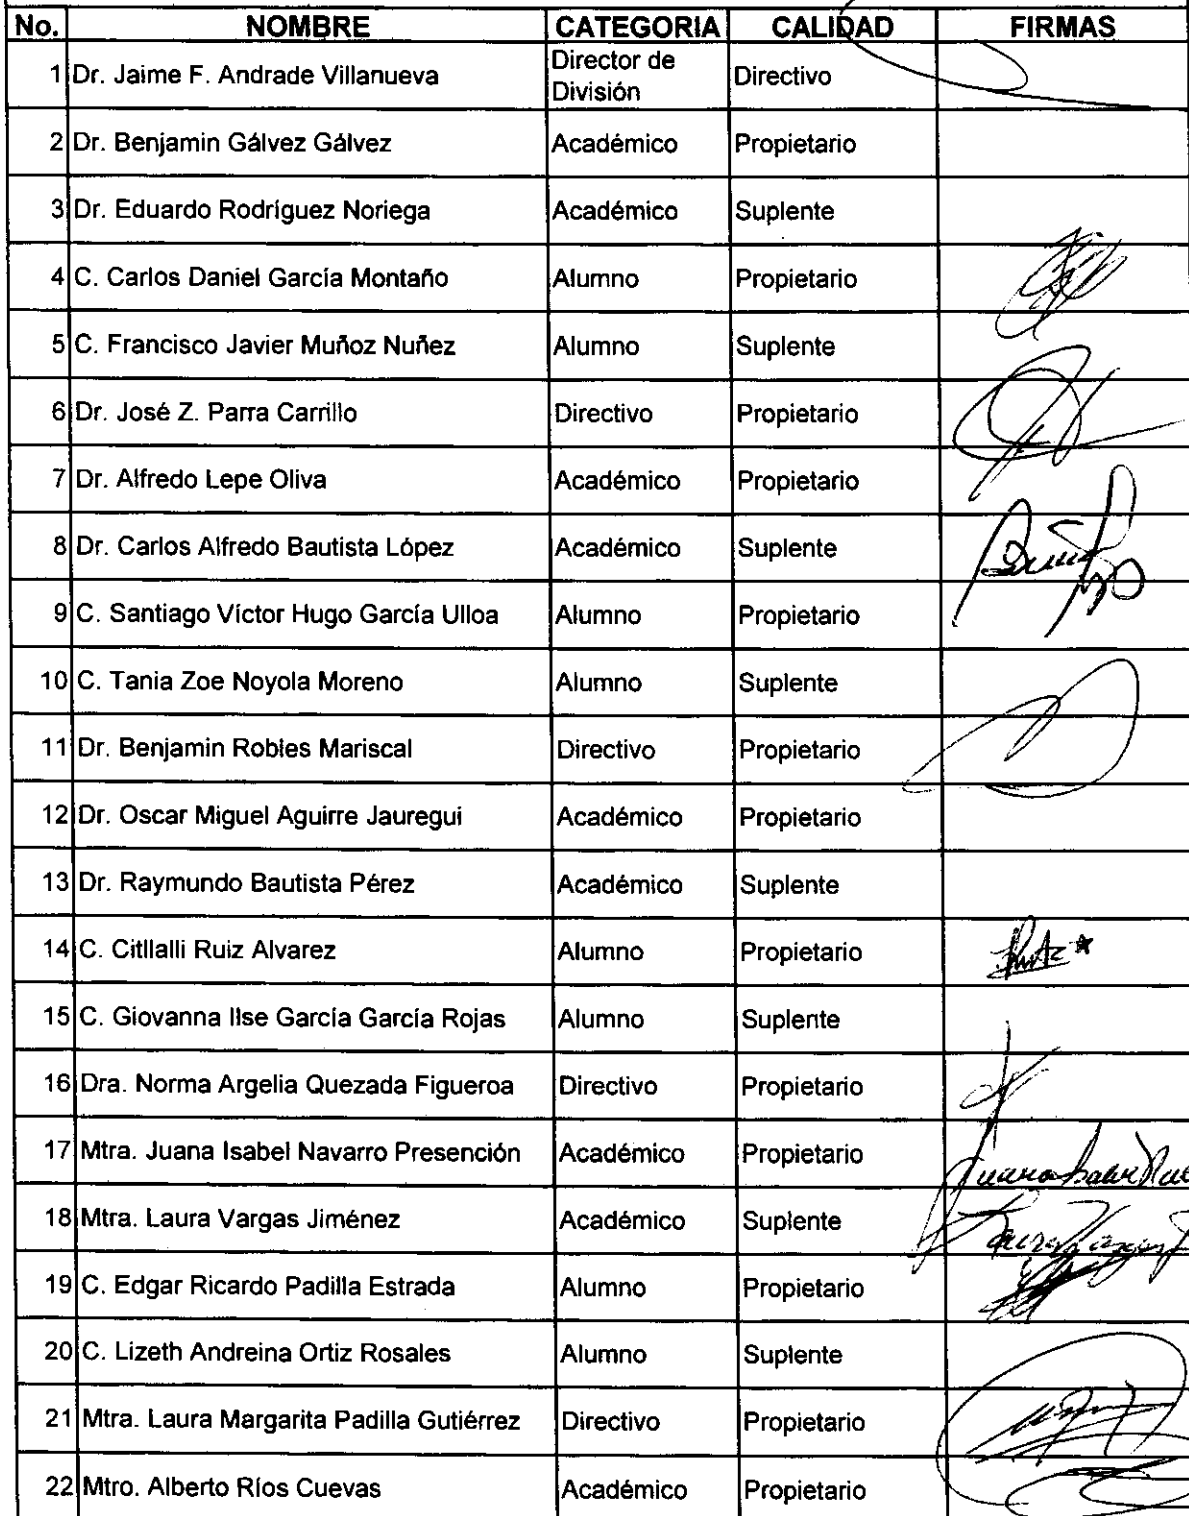 No. NOMBRE CATEGORIA CALIDAD FIRMAS
1 Dr. Jaime F. Andrade Villanueva Director de División Directivo
2 Dr. Benjamin Gálvez Gálvez Académico Propietario
3 Dr. Eduardo Rodríguez Noriega Académico Suplente
4 C. Carlos Daniel García Montaño Alumno Propietario
5 C. Francisco Javier Muñoz Nuñez Alumno Suplente
6 Dr. José Z. Parra Carrillo Directivo Propietario
7 Dr. Alfredo Lepe Oliva Académico Propietario
8 Dr. Carlos Alfredo Bautista López Académico Suplente
9 C. Santiago Víctor Hugo García Ulloa Alumno Propietario
10 C. Tania Zoe Noyola Moreno Alumno Suplente
11 Dr. Benjamin Robles Mariscal Directivo Propietario
12 Dr. Oscar Miguel Aguirre Jauregui Académico Propietario
13 Dr. Raymundo Bautista Pérez Académico Suplente
14 C. Citllalli Ruiz Alvarez Alumno Propietario
15 C. Giovanna Ilse García García Rojas Alumno Suplente
16 Dra. Norma Argelia Quezada Figueroa Directivo Propietario
17 Mtra. Juana Isabel Navarro Presención Académico Propietario
18 Mtra. Laura Vargas Jiménez Académico Suplente
19 C. Edgar Ricardo Padilla Estrada Alumno Propietario
20 C. Lizeth Andreina Ortiz Rosales Alumno Suplente
21 Mtra. Laura Margarita Padilla Gutiérrez Directivo Propietario
22 Mtro. Alberto Ríos Cuevas Académico Propietario